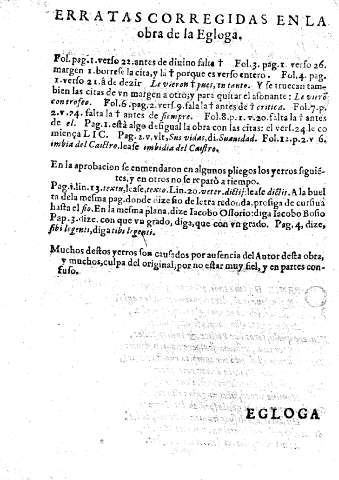 ERRATAS CORREGIDAS EN LA
obra de la Egloga.
Fol. pag. 1. verso 22. antes de diuino falta † Fol. 3. pag. 1. verso 26.
margen 1. borrese la cita, y la † porque es verso entero. Fol. 4. pag.
1. verso 21. â de dezir Le vieron † pues, en tanto. Y se truecan tam
bien las citas de vn margen a otro; y para quitar el asonante: Le vieró
controfeo. Fol. 6. pag. 2. verſ. 9. fala la † antes de † critica. Fol. 7. p.
2. v. 24. falta la † antes de siempre. Fol. 8. p. 1. v. 20. falta la † antes
de el. Pag. 1. està algo desigual la obra con las citas: el vers. 24. le co
miença LIC. Pag. 2. v. vlt, Sus vidas, di. Suauidad. Fol. 12. p. 2. v 6.
imbia del Castro. lease imbidia del Castro.
En la aprobacion se enmendaron en algunos pliegos los yerros siguié-
tes, y en otros no se reparò a tiempo.
Pag. 1. lin. 13. textu, lease, texto. Lin. 20. veter. dictij: lease dictis. A la buel
ta de la mesma pag. donde dize sio de letra redonda, prosiga de cursiua
hasta el sio. En la mesma plana, dize Iacobo Ossorio: diga Iacobo Bosio
Pap. 3. dize, con que vn grado, diga, que con vn grado. Pag. 4, dize,
sibi legenti, diga tibi legenti.
Muchos destos yerros son causados por ausencia del Autor desta obra,
y muchos, culpa del original, por no estar muy fiel, y en partes con-
fuso.
EGLOGA